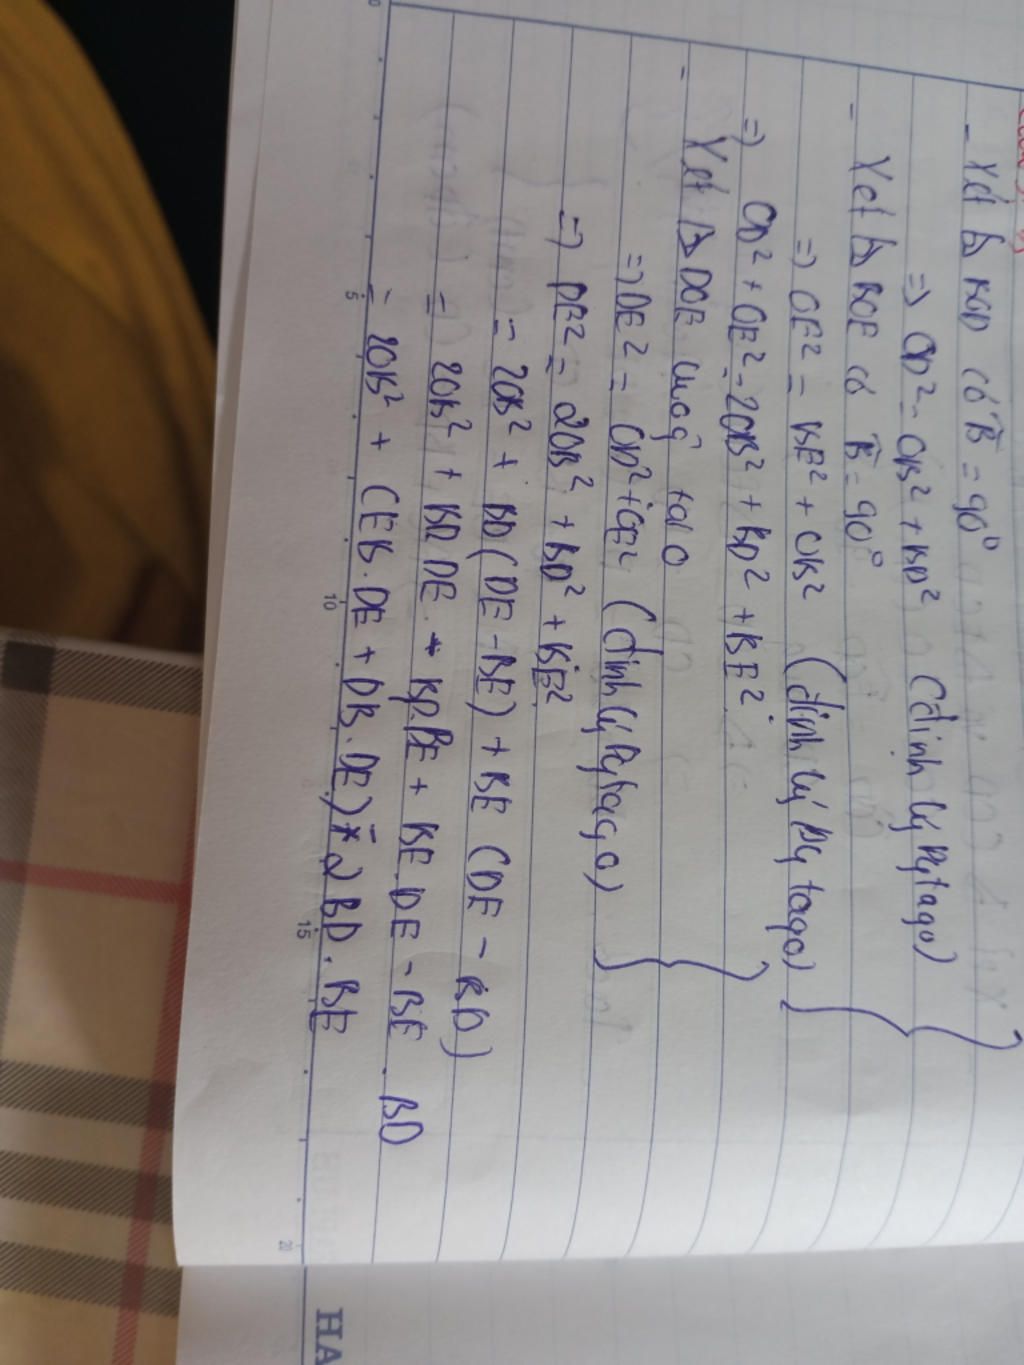 - Xét Δ BOD có B̂ = 90°
=> OD² = OB² + BD² (định lý Pytago)
- Xét Δ BOE có B̂ = 90°
=> OE² = BE² + OB² (định lý Pytago)
=> OD² + OE² = 2OB² + BD² + BE²
- Xét Δ DOE vuông tại O
=> DE² = OD² + OE² (định lý Pytago)
=> DE² = 2OB² + BD² + BE²
= 2OB² + BD (DE - BE) + BE (DE - BD)
= 2OB² + BD.DE - BD.BE + BE.DE - BE.BD
= 2OB² + (EB.DE + DB.DE) - 2BD.BE
5
10
15
20
HA